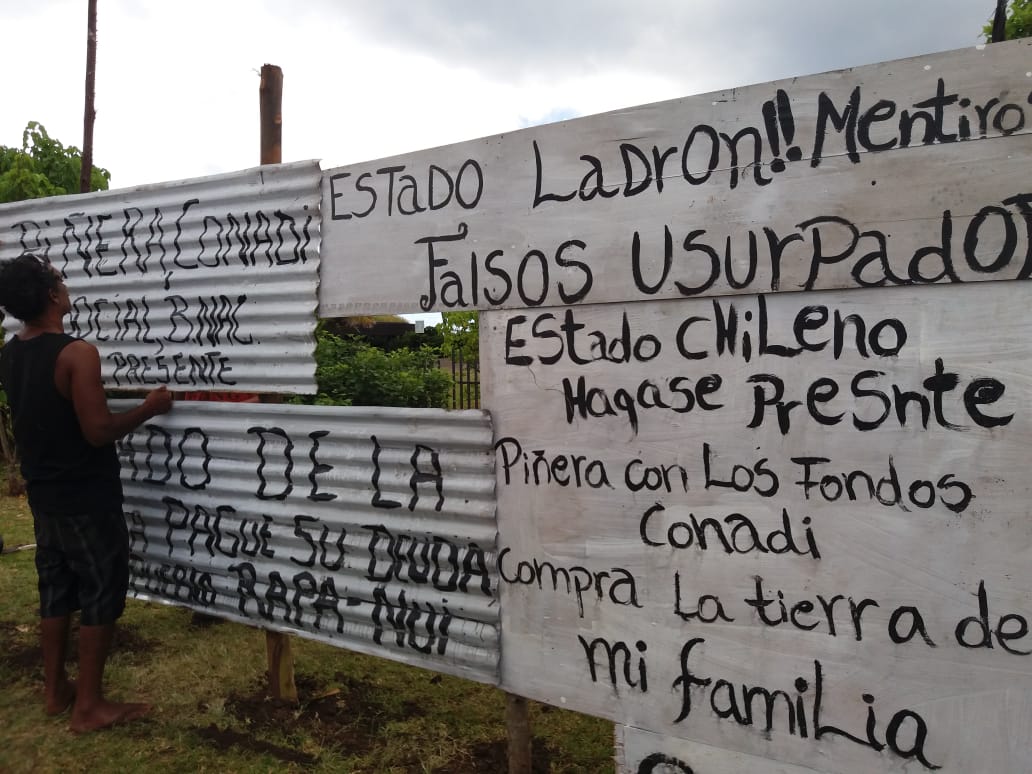 PIÑERA, CONADI
SOCIAL, B. NAC.
PRESENTE
DE LA
PAGUE SU DEUDA
RAPA-NUI
ESTADO LADRON!! MENTIRO
FALSOS USURPADOR
ESTADO CHILENO
HAGASE PRESNTE
Piñera con Los Fondos
Conadi
Compra La tierra de
mi familia